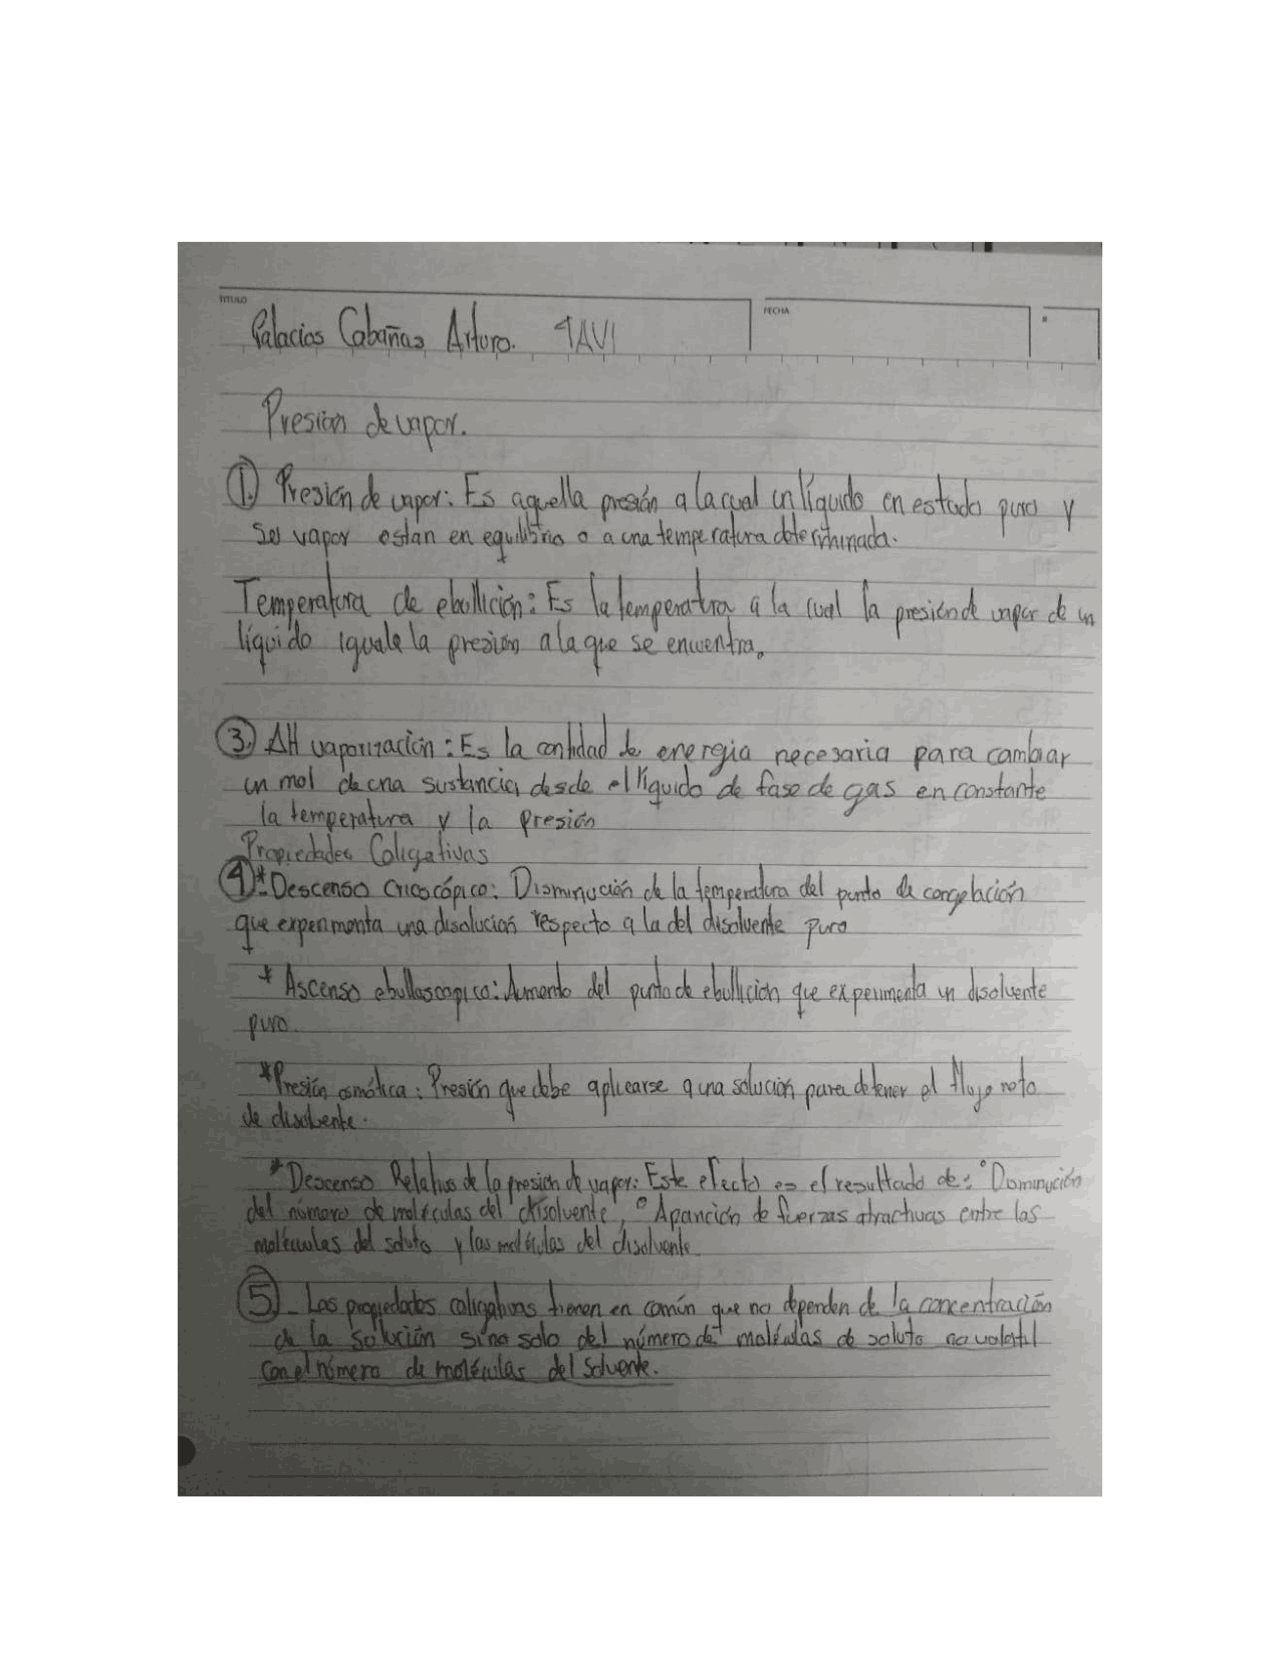 TITULO
FECHA
Palacios Cabañas Arturo. 4AV1
Presión de vapor.
1. Presión de vapor: Es aquella presión a la cual un líquido en estado puro y
su vapor estan en equilibrio o a una temperatura determinada.
Temperatura de ebullición: Es la temperatura a la cual la presión de vapor de un
líquido iguale la presión a la que se encuentra.
3. ΔH vaporización: Es la cantidad de energia necesaria para cambiar
un mol de una sustancia, desde el líquido de fase de gas en constante
la temperatura y la presión
Propiedades Coligativas
4 * Descenso Crioscópico: Disminución de la temperatura del punto de congelación
que experimenta una disolución respecto a la del disolvente puro
* Ascenso ebulloscopico: Aumento del punto de ebullición que experimenta un disolvente
puro.
* Presión osmótica: Presión que debe aplicarse a una solución para detener el flujo neto
de disolvente.
* Descenso Relativo de la presion de vapor: Este efecto es el resultado de: ° Disminución
del número de moléculas del disolvente, ° Aparición de fuerzas atractivas entre las
moléculas del soluto y las moléculas del disolvente.
5 - Las propiedades coligativas tienen en común que no dependen de la concentración
de la solución sino solo del número de moléculas de soluto no volatil
con el número de moléculas del solvente.